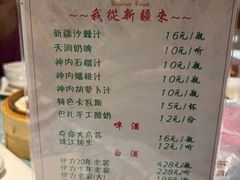 ～我從新疆來～
新疆沙棘汁 16元/瓶
天润奶啤 10元/听
神内石榴汁 10元/瓶
神内蟠桃汁 10元/瓶
神内胡萝卜汁 10元/瓶
特色卡瓦斯 15元/杯
巴扎手工酸奶 12元/杯
啤酒
夺命大乌苏 16元/瓶
珠江纯生 12元/瓶
白酒
伊力20年老窖 428元/瓶